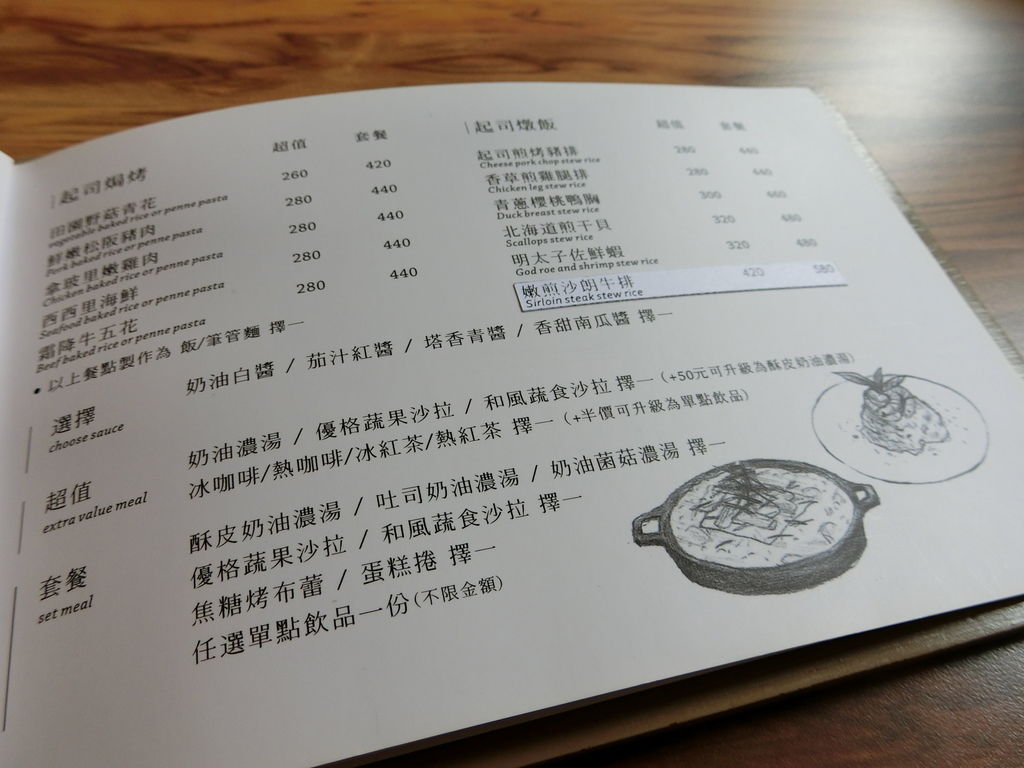 起司焗烤 超值 套餐
田園野菇青花 260 420
vegetable baked rice or penne pasta
鮮嫩松阪豬肉 280 440
Pork baked rice or penne pasta
拿玻里嫩雞肉 280 440
Chicken baked rice or penne pasta
西西里海鮮 280 440
Seafood baked rice or penne pasta
霜降牛五花 280 440
Beef baked rice or penne pasta
• 以上餐點製作為 飯/筆管麵 擇一
起司燉飯 超值 套餐
起司煎烤豬排 280 440
Cheese pork chop stew rice
香草煎雞腿排 280 440
Chicken leg stew rice
青蔥櫻桃鴨胸 300 460
Duck breast stew rice
北海道煎干貝 320 480
Scallops stew rice
明太子佐鮮蝦 320 480
God roe and shrimp stew rice
嫩煎沙朗牛排 420 580
Sirloin steak stew rice
選擇
choose sauce
奶油白醬 / 茄汁紅醬 / 塔香青醬 / 香甜南瓜醬 擇一
超值
extra value meal
奶油濃湯 / 優格蔬果沙拉 / 和風蔬食沙拉 擇一 (+50元可升級為酥皮奶油濃湯)
冰咖啡/熱咖啡/冰紅茶/熱紅茶 擇一 (+半價可升級為單點飲品)
套餐
set meal
酥皮奶油濃湯 / 吐司奶油濃湯 / 奶油菌菇濃湯 擇一
優格蔬果沙拉 / 和風蔬食沙拉 擇一
焦糖烤布蕾 / 蛋糕捲 擇一
任選單點飲品一份(不限金額)